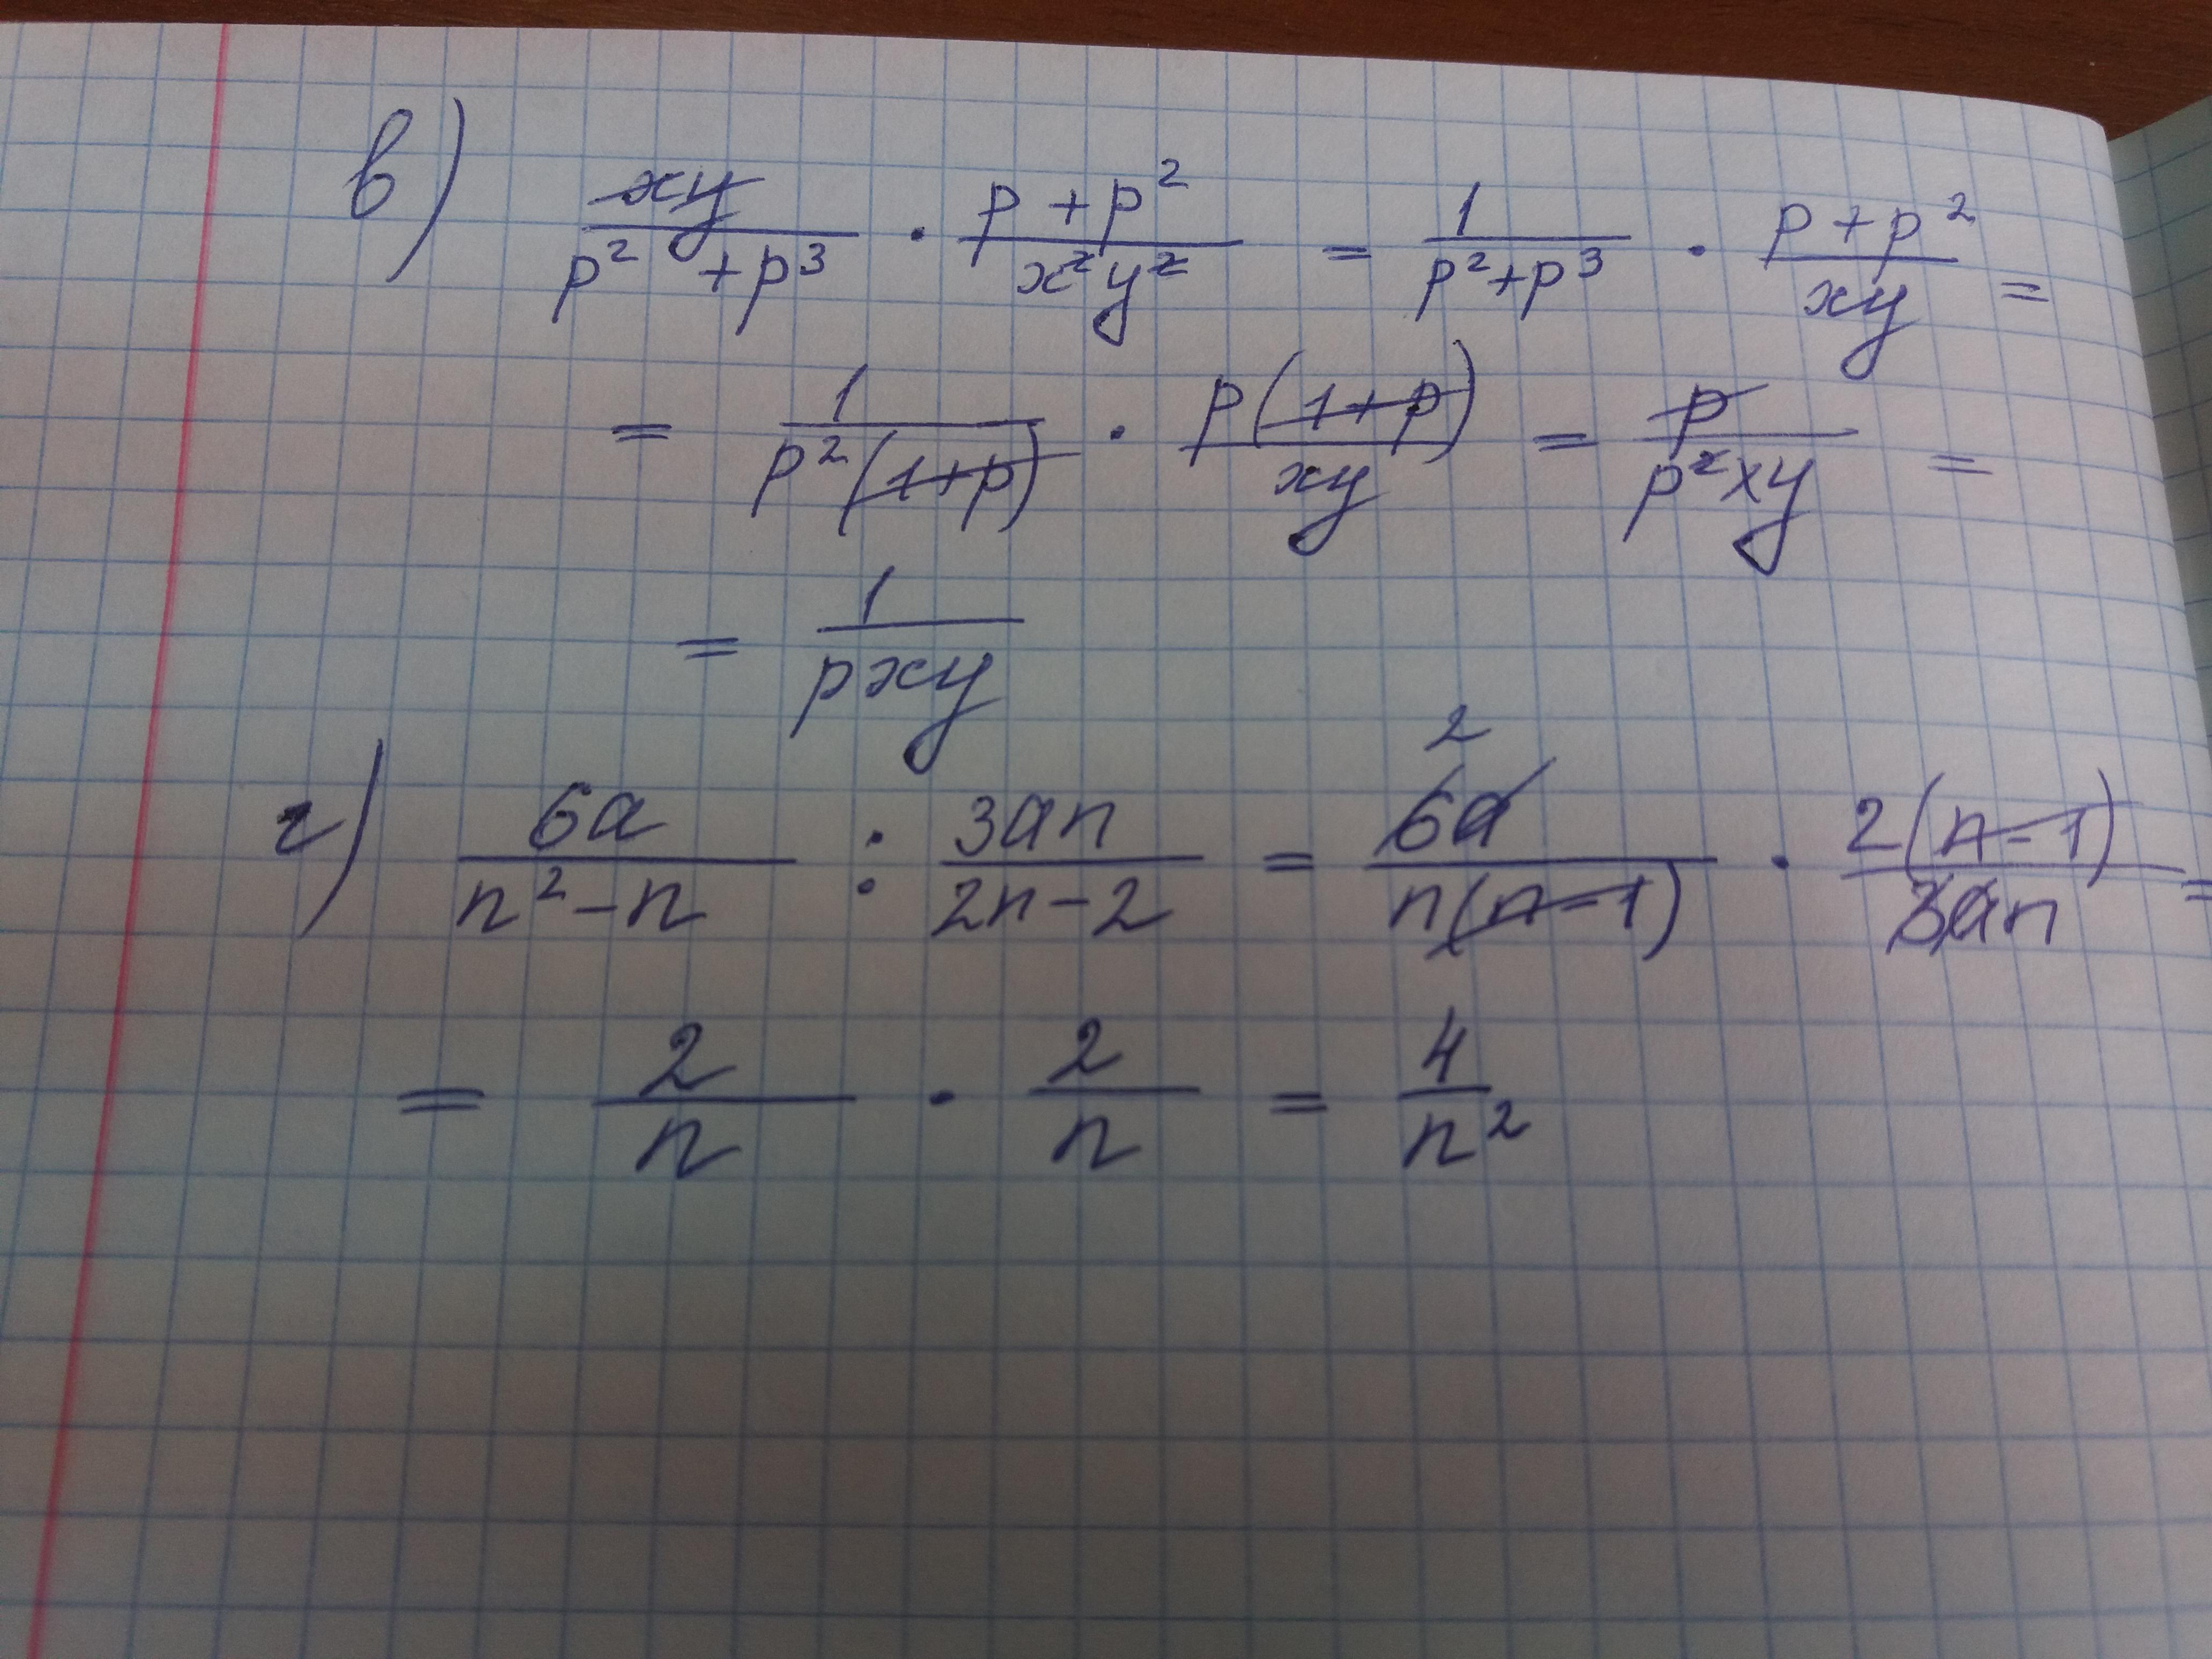 в) xy/(p² + p³) · (p + p²)/(x²y²) = 1/(p² + p³) · (p + p²)/(xy) =
= 1/(p²(1+p)) · p(1+p)/(xy) = p/(p²xy) =
= 1/(pxy)
г) 6a/(n² – n) : 3an/(2n – 2) = 2 6a/(n(n–1)) · 2(n–1)/(3an) =
= 2/n · 2/n = 4/n²